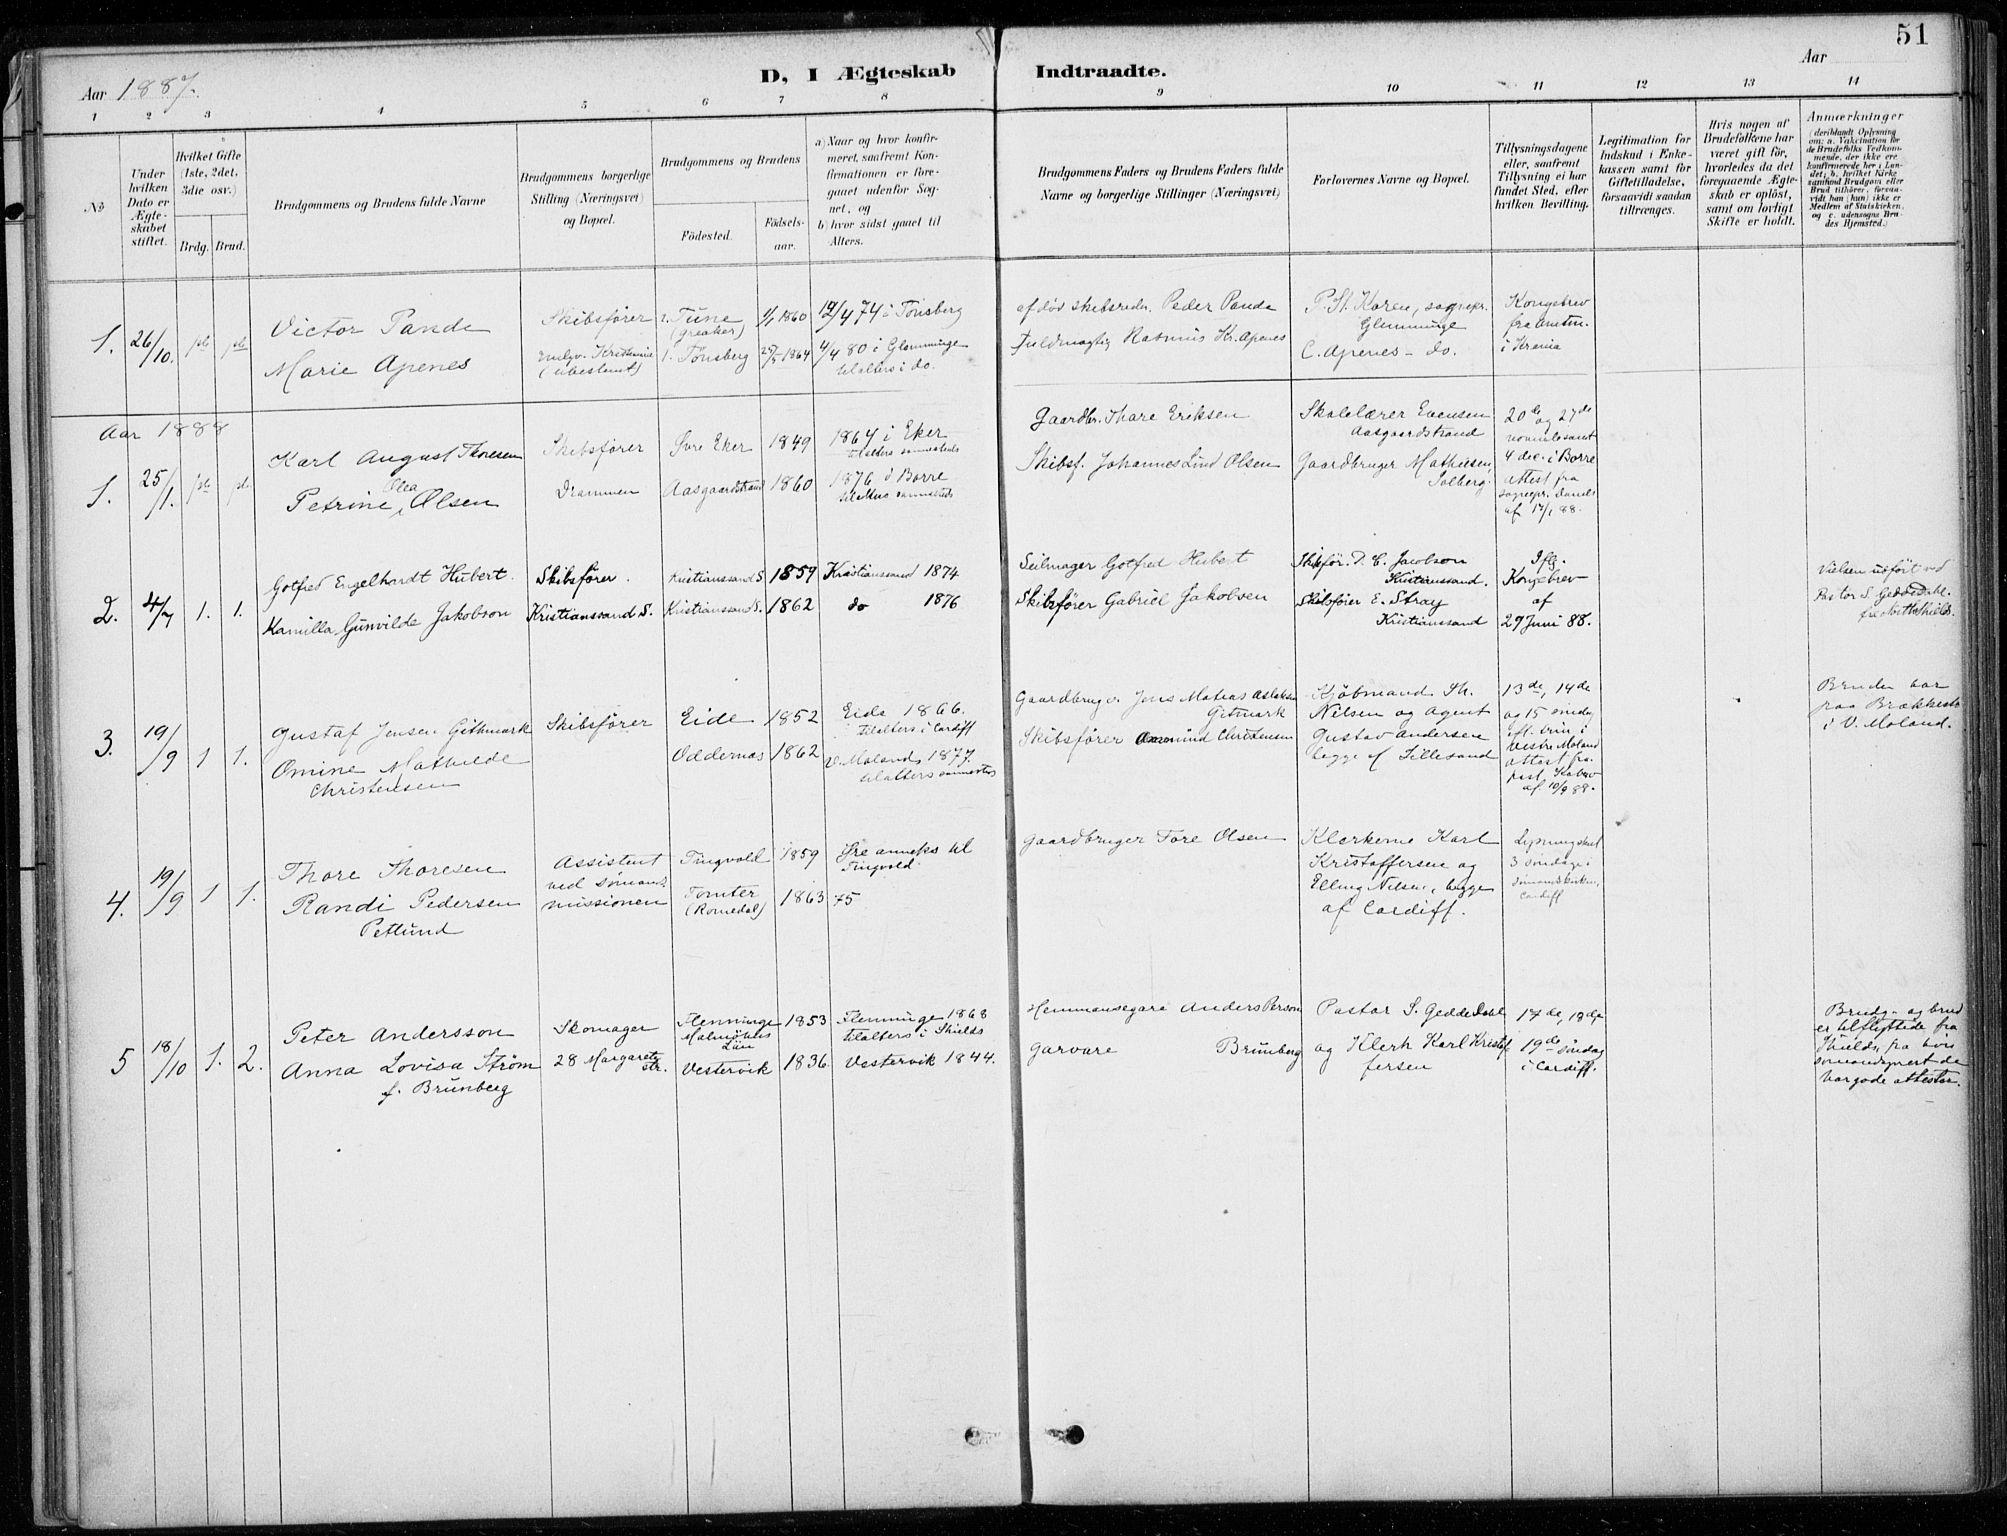 51
D, I Ægteskab Indtraadte.
Aar 1887.
Aar
1 2 3 4 5 6 7 8 9 10 11 12 13 14
No
Under hvilken Dato er Ægteskabet stiftet.
Hvilket Gifte (1ste, 2det, 3die osv.)
Brdg. Brud.
Brudgommens og Brudens fulde Navne
Brudgommens borgerlige Stilling (Næringsvei) og Bopæl.
Brudgommens og Brudens
Födested.
Födselsaar.
a) Naar og hvor konfirmeret, saafremt Konfirmationen er foregaaet udenfor Sognet, og
b) hvor sidst gaaet til Alters.
Brudgommens Faders og Brudens Faders fulde Navne og borgerlige Stillinger (Næringsvei)
Forlovernes Navne og Bopæl.
Tillysningsdagene eller, saafremt Tillysning ei har fundet Sted, efter hvilken Bevilling.
Legitimation for Indskud i Enkekassen samt for Giftetilladelse, forsaavidt saadan tiltrænges.
Hvis nogen af Brudefolkene har været gift för, hvorledes da det foregaaende Ægteskab er oplöst, samt om lovligt Skifte er holdt.
Anmærkninger
(deriblandt Oplysning om: a. Vakcination for de Brudefolks Vedkommende, der ikke ere konfirmerede her i Landet; b. hvilket Kirkesamfund Brudgom eller Brud tilhörer, forsaavidt han (hun) ikke er Medlem af Statskirken, og c. udensogns Brudes Hjemsted.)
1. 26/10.
Victor Pande
Marie Apenes
Skibsfører
(ubestemt)
2. Tune (Greaker)
1. Tönsberg
1/1 1860
1864
19/4 74 i Tönsberg
4/4 80 i Glemminge
til alters i do.
afdöd skibsreder Peder Pande
Fuldmægtig Rasmus Kr. Apenes
P. St. Koren, sognepr.
Glemminge
C. Apenes - do.
Kongebrev
fra Amtm.
i Krania
Aar 1888
1. 25/1.
Karl August Thoresen
Olea
Petrine, Olsen
Skibsfører
Drammen
Övre Eker
Aasgaardstrand
1849
1860
1864 i Eker
til alters sammesteds
1876 i Borre
til alters sammesteds
Gaardbr. Thore Eriksen
Skibsf. Johannes Lind Olsen
Skolelærer Evensen
Aasgaardstrand
Gaardbruger Mathiesen,
Solberg.
20de og 27de
november samt
4 dec. i Borre
Attest fra
sognepr.
af 17/1 88.
2. 4/7 1. 1.
Gotfred Engelhardt Hubert.
Kamilla Gunvilde Jakobson
Skibsfører.
Kristianssand S.
Kristianssand S.
Kristianssand S.
1859
1862
Kristianssand 1874
do 1876
Seilmager Gotfred Hubert
Skibsfører Gabriel Jakobsen
Skibsför. D. C. Jacobson
Kristianssand.
Skibsfører E. Stray
Kristianssand
Ifg.
Kongebrev
af
29 Juni 88.
Vielsen udført ved
Pastor S. Geddedahl.
fra North Shields.
3. 19/9 1 1.
Gustaf Jensen Githmark
Omine Mathilde
Christensen
Skibsfører
Eide
Oddernæs
1852
1862
Eide 1866.
til alters i Cardiff
V. Moland 1877.
til alters sammesteds
Gaardbruger Jens Matias Aslaksen
Gitmark
Skibsfører Aanund Christensen
Kjöbmand Th.
Nilsen og Agent
Gustav Andersen
begge af Lillesand
13de, 14de
og 15 söndag
eft. trin i
Vestre Moland
attest fra
past.
af 10/9 88.
Bruden bor
paa Brækkestø
i V. Moland.
4. 19/9 1 1.
Thore Thoresen
Randi Pedersen
Petlund
Assistent
ved sömands
missionen
Tingvold
Tomter
(Romedal)
1859
1863
Öre anneks til
Tingvold.
75
Gaardbruger Tore Olsen
Klerkerne Karl
Kristoffersen og
Elling Nilsen, begge
af Cardiff.
3 söndage i
Sömandskirken,
Cardiff
5 18/10 1. 2.
Peter Andersson
Anna Lovisa Ström
f. Brünberg
Skomager
28 Margarets str.
Flenninge
Malmöhus
Län
Vestervik
1853
1836
Flenninge 1868
til alters i Shields
Vestervik 1844.
Hemmansegare Anders Person
Garvare Brünberg
Pastor S. Gedde Dahl
og Klerk Karl Kristof
fersen
17de, 18de,
19de söndag
i Cardiff.
Brudg. og brud
er tilflyttede fra
Shields, fra hvis
de
har gode attester.